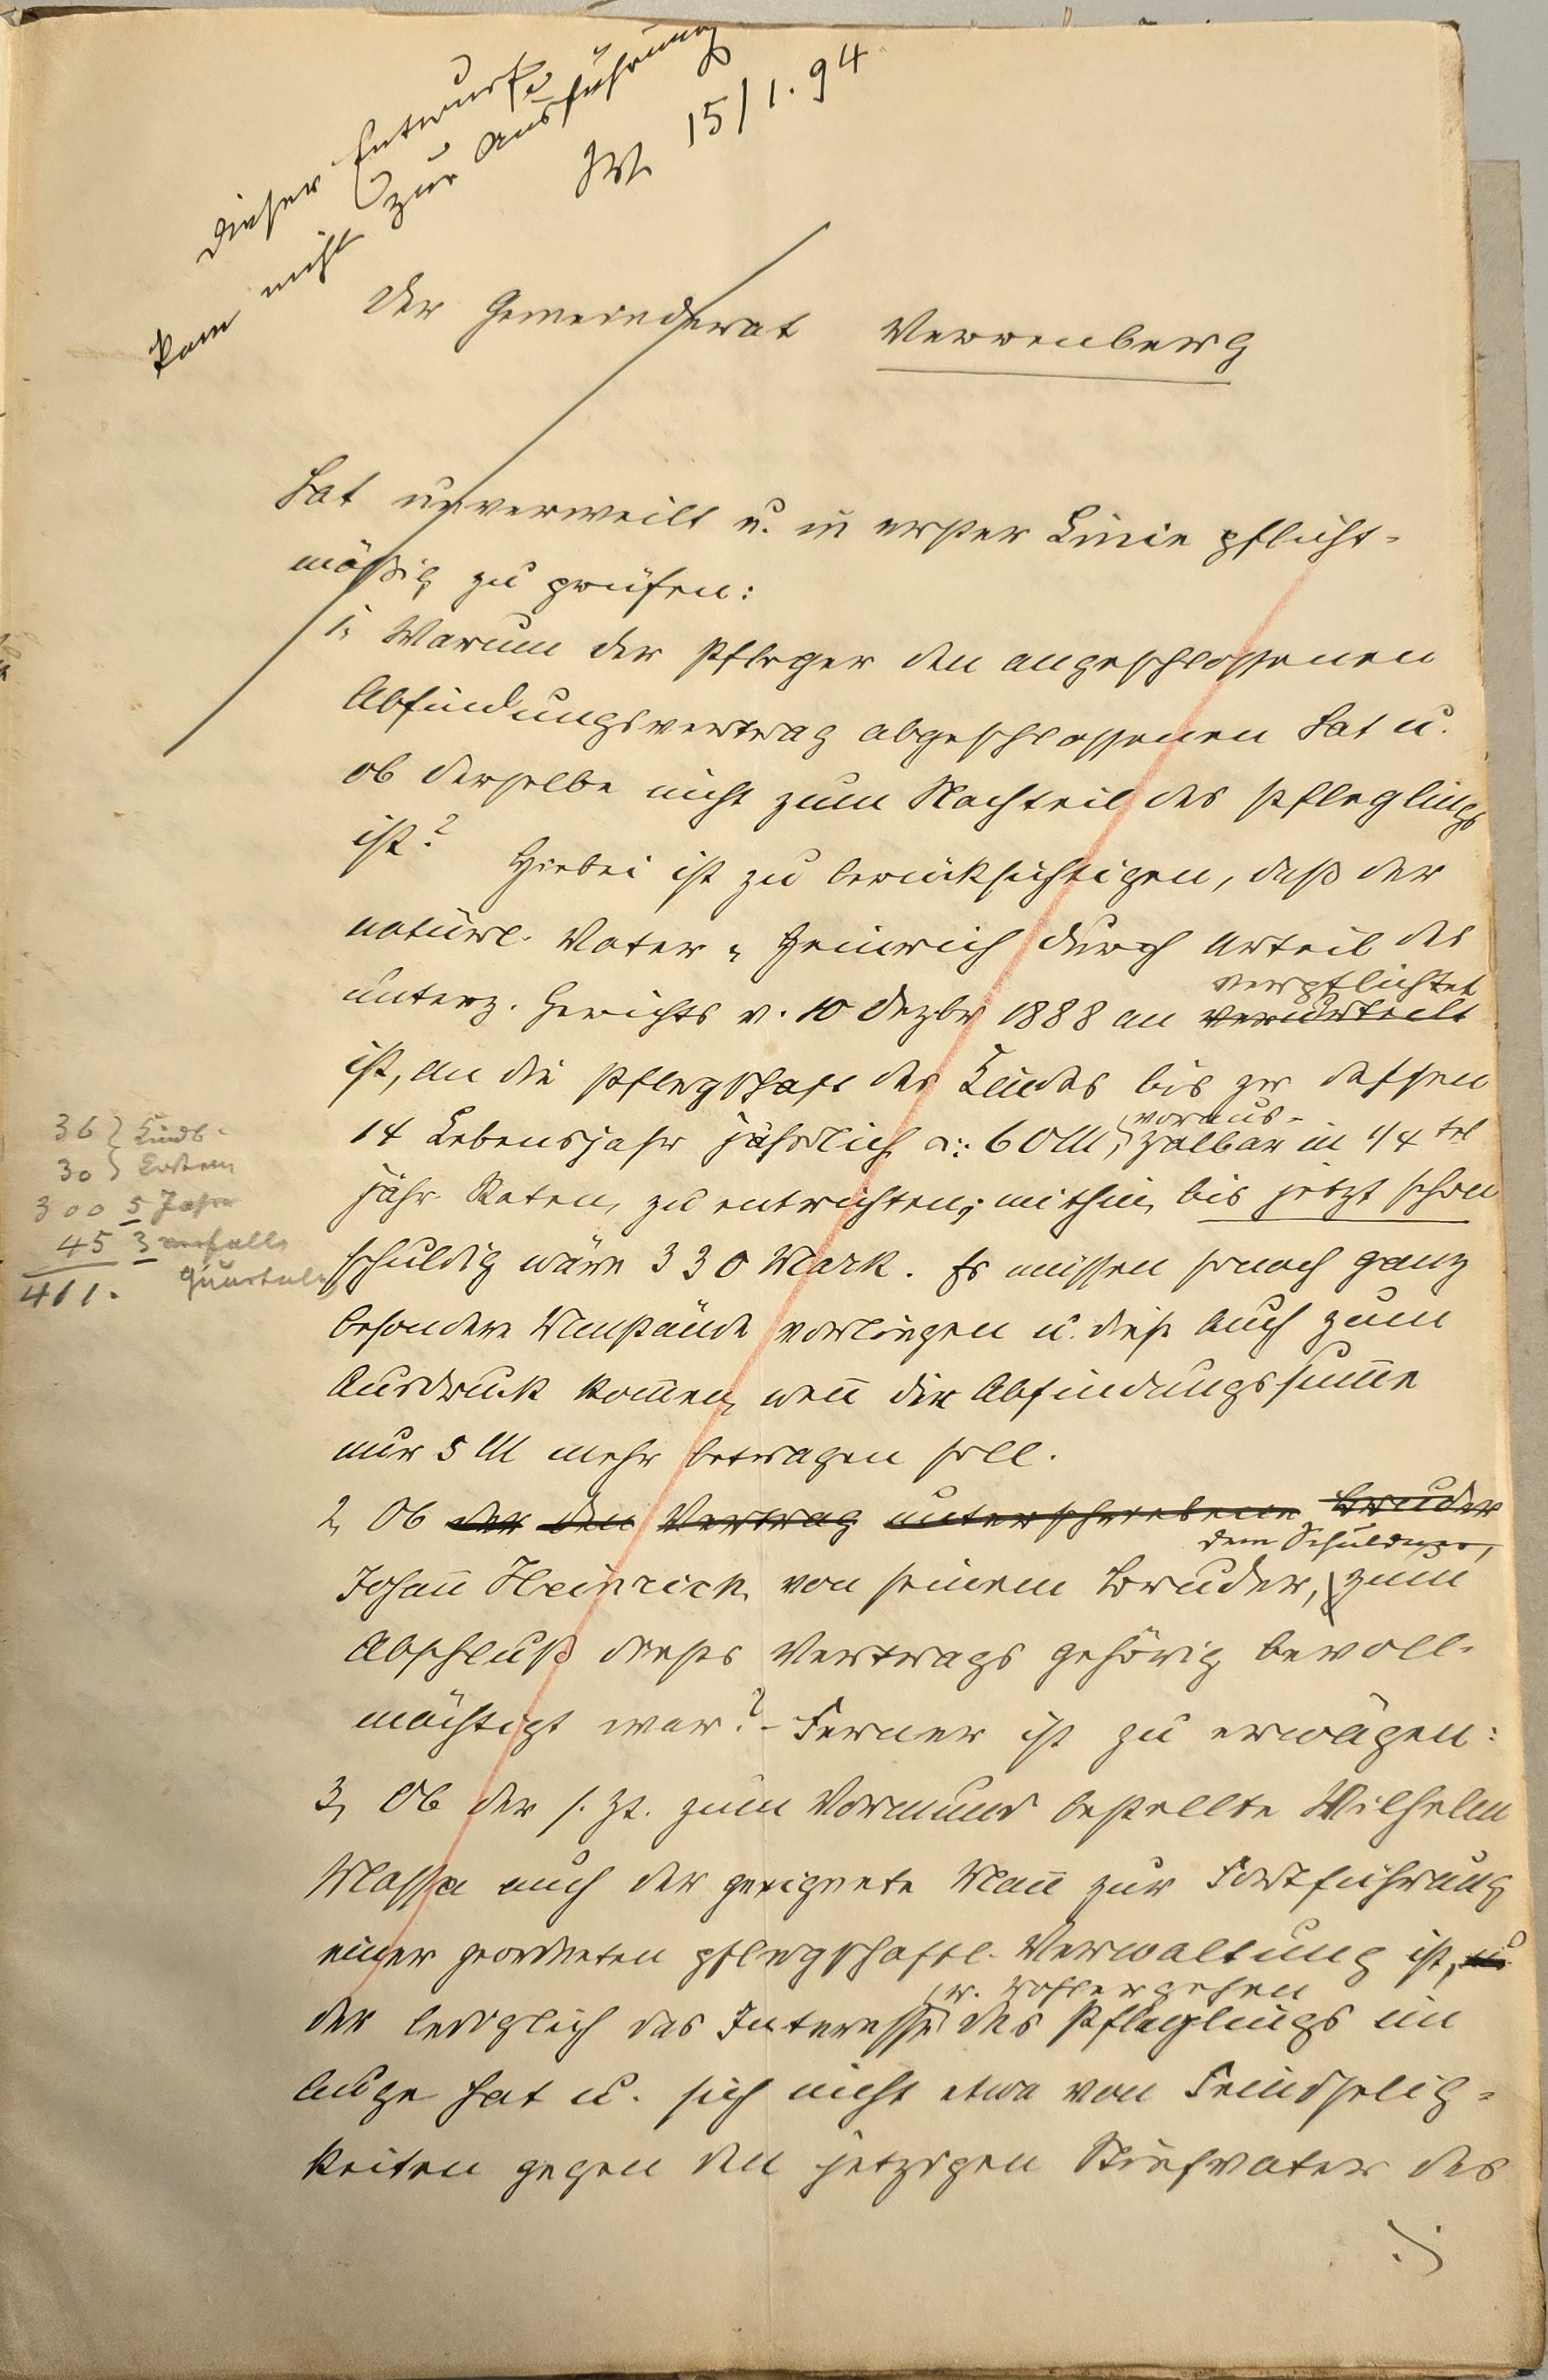 Dieser Entwurf
kam nicht zur Ausführung
15/1. 94
Der Gemeinderat Verrenberg
hat unverweilt u. in erster Linie pflicht-
mäßig zu prüfen:
1, Warum der Pfleger den angeschlossenen
Abfindungsvertrag abgeschlossenen hat u.
ob derselbe nicht zum Nachteil des Pfleglings
ist? Hiebei ist zu berücksichtigen, daß der
natürl. Vater, Heinrich durch Urteil des
verpflichtet
unterz. Gerichts v. 10 Dezbr 1888 an verurteilt
ist, an die Pflegschaft des Kindes bis zu dessen
voraus-
14 Lebensjahr jährlich 60 M, zalbar in 1/4 tel
jähr. Raten, zu entrichten; mithin, bis jetzt schon
schuldig wäre 330 Mark. Es müssen sonach ganz
besondere Umstände vorliegen u. diese auch zum
Ausdruck kom̅en, wen̅ die Abfindungssum̅e
nur 5 M mehr betragen soll.
2, Ob der den Vertrag unterschriebene Bruder
dem Schuldner,
Johan̅ Heinrich von seinem Bruder, zum
Abschluß dieses Vertrags gehörig bevoll-
mächtigt war? - Ferner ist zu erwägen:
3, Ob der s. Zt. zum Vormund bestellte Wilhelm
Massa auch der geeignete Man̅ zur Fortführung
einer geordneten pflegschaftl. Verwaltung ist, u.
u. Wohlergehen
der lediglich das Interesse des Pfleglings im
Auge hat u. sich nicht etwa von Feindselig-
keiten gegen den jetzigen Stiefvater des
36 } Kindb.
30 } Kosten
300 5 Jahre
45 3 verfall.
Quartale
411.